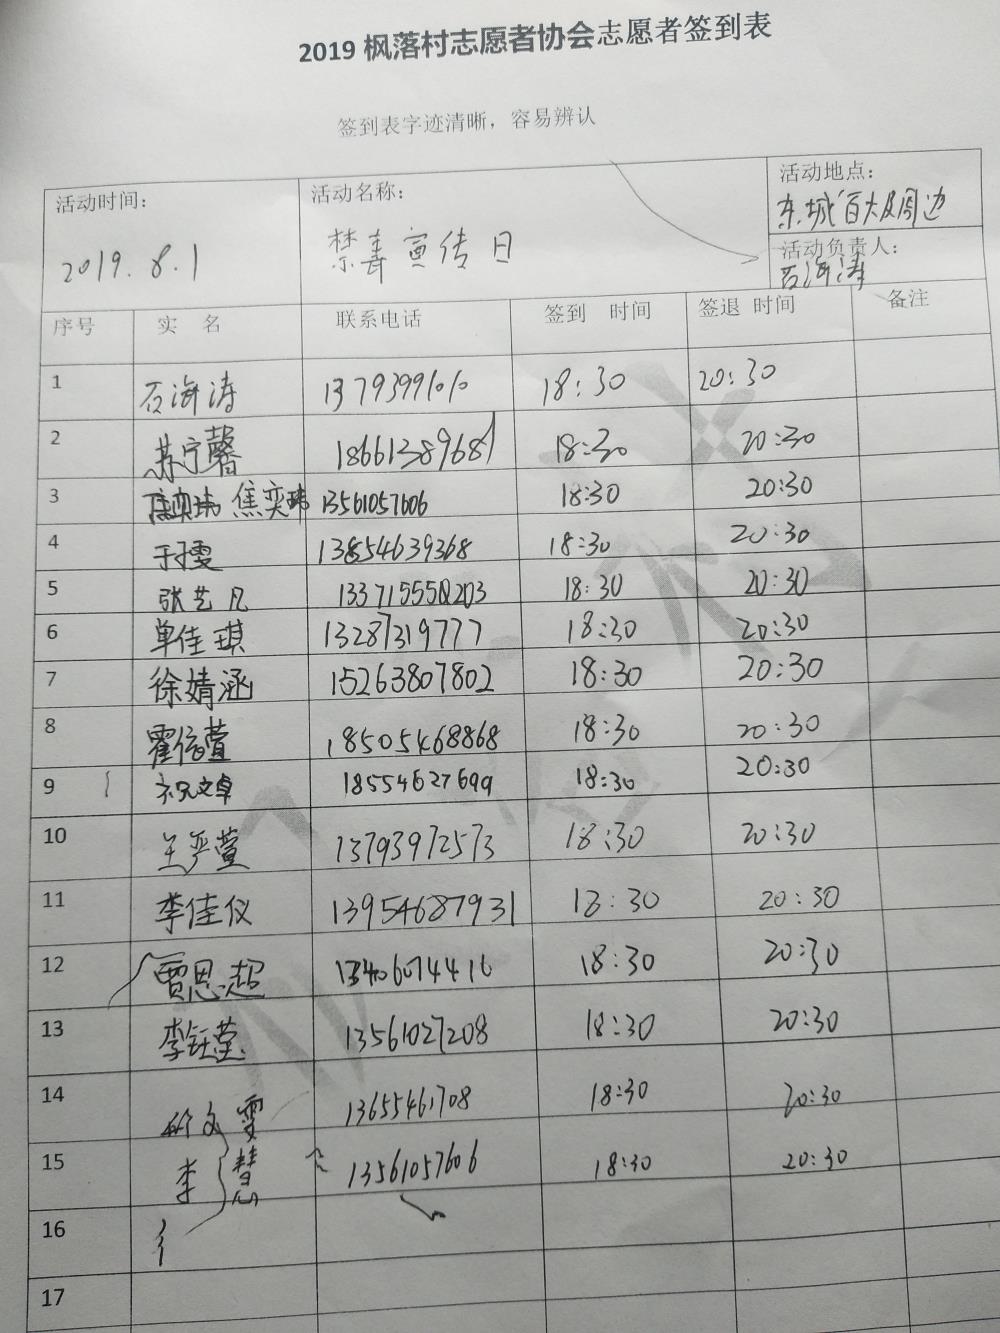 2019 枫落村志愿者协会志愿者签到表
签到表字迹清晰，容易辨认
活动时间： 活动名称： 活动地点：
2019.8.1 禁毒宣传日 东城百大及周边
活动负责人：
石海涛
序号 实 名 联系电话 签到 时间 签退 时间 备注
1 石海涛 18:30 20:30
2 苏宁馨 18661389681 18:30 20:30
3 焦奕玮 焦奕玮 13561057606 18:30 20:30
4 于子雯 13854639368 18:30 20:30
5 张艺凡 18:30 20:30
6 单佳琪 13287319777 18:30 20:30
7 徐婧涵 15263807802 18:30 20:30
8 霍倍萱 18505468868 18:30 20:30
9 祝文卓 18554627699 18:30 20:30
10 王严萱 13793972573 18:30 20:30
11 李佳仪 13954687931 18:30 20:30
12 贾恩超 13406074416 18:30 20:30
13 李钰莹 13561027208 18:30 20:30
14 文雯 13655461708 18:30 20:30
15 李慧 13561057606 18:30 20:30
16
17